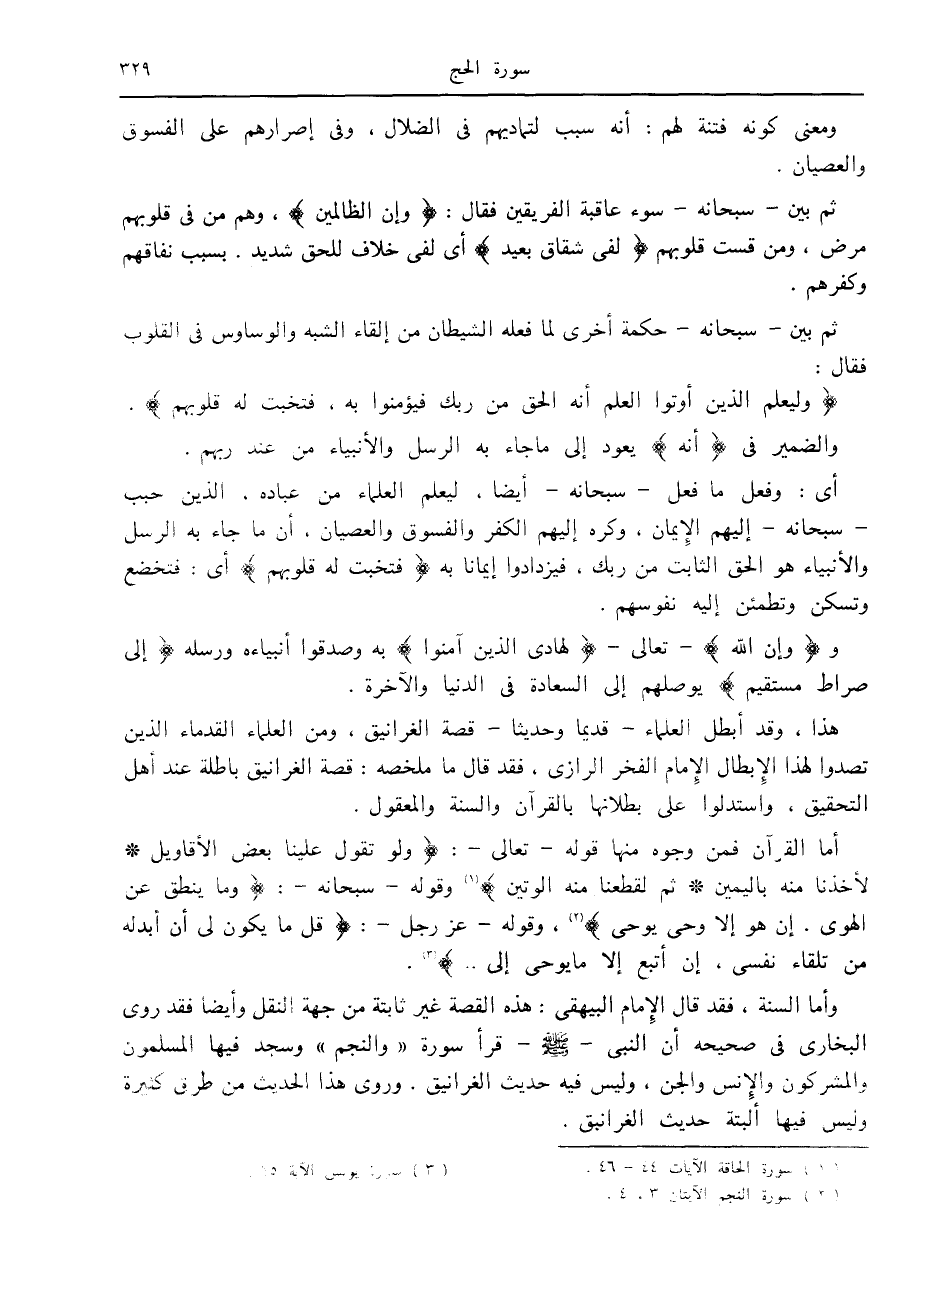 سورة الحج ٣٢٩
ومعنى كونه فتنة لهم : أنه سبب لتماديهم فى الضلال ، وفى إصرارهم على الفسوق
والعصيان .
ثم بين - سبحانه - سوء عاقبة الفريقين فقال : ﴿ وإن الظالمين ﴾ ، وهم من فى قلوبهم
مرض ، ومن قست قلوبهم ﴿ لفى شقاق بعيد ﴾ أى لفى خلاف للحق شديد . بسبب نفاقهم
وكفرهم .
ثم بين - سبحانه - حكمة أخرى لما فعله الشيطان من إلقاء الشبه والوساوس فى القلوب
فقال :
﴿ وليعلم الذين أوتوا العلم أنه الحق من ربك فيؤمنوا به ، فتخبت له قلوبهم ﴾ .
والضمير فى ﴿ أنه ﴾ يعود إلى ماجاء به الرسل والأنبياء من عند ربهم .
أى : وفعل ما فعل - سبحانه - أيضا ، ليعلم العلماء من عباده ، الذين حبب
- سبحانه - إليهم الإيمان ، وكره إليهم الكفر والفسوق والعصيان ، أن ما جاء به الرسل
والأنبياء هو الحق الثابت من ربك ، فيزدادوا إيمانا به ﴿ فتخبت له قلوبهم ﴾ أى : فتخضع
وتسكن وتطمئن إليه نفوسهم .
و ﴿ وإن الله ﴾ - تعالى - ﴿ لهادى الذين آمنوا ﴾ به وصدقوا أنبياءه ورسله ﴿ إلى
صراط مستقيم ﴾ يوصلهم إلى السعادة فى الدنيا والآخرة .
هذا ، وقد أبطل العلماء - قديما وحديثا - قصة الغرانيق ، ومن العلماء القدماء الذين
تصدوا لهذا الإبطال الإمام الفخر الرازى ، فقد قال ما ملخصه : قصة الغرانيق باطلة عند أهل
التحقيق ، واستدلوا على بطلانها بالقرآن والسنة والمعقول .
أما القرآن فمن وجوه منها قوله - تعالى - : ﴿ ولو تقول علينا بعض الأقاويل *
لأخذنا منه باليمين * ثم لقطعنا منه الوتين ﴾(١) وقوله - سبحانه - : ﴿ وما ينطق عن
الهوى . إن هو إلا وحى يوحى ﴾(٢) ، وقوله - عز رجل - : ﴿ قل ما يكون لى أن أبدله
من تلقاء نفسى ، إن أتبع إلا مايوحى إلى .. ﴾(٣) .
وأما السنة ، فقد قال الإمام البيهقى : هذه القصة غير ثابتة من جهة النقل وأيضا فقد روى
البخارى فى صحيحه أن النبى - ﷺ - قرأ سورة « والنجم » وسجد فيها المسلمون
والمشركون والإنس والجن ، وليس فيه حديث الغرانيق . وروى هذا الحديث من طرق كثيرة
وليس فيها ألبتة حديث الغرانيق .
(١) سورة الحاقة الآيات ٤٤ - ٤٦ . (٣) سورة يونس الآية ١٥ .
(٢) سورة النجم الآيتان ٣ ، ٤ .